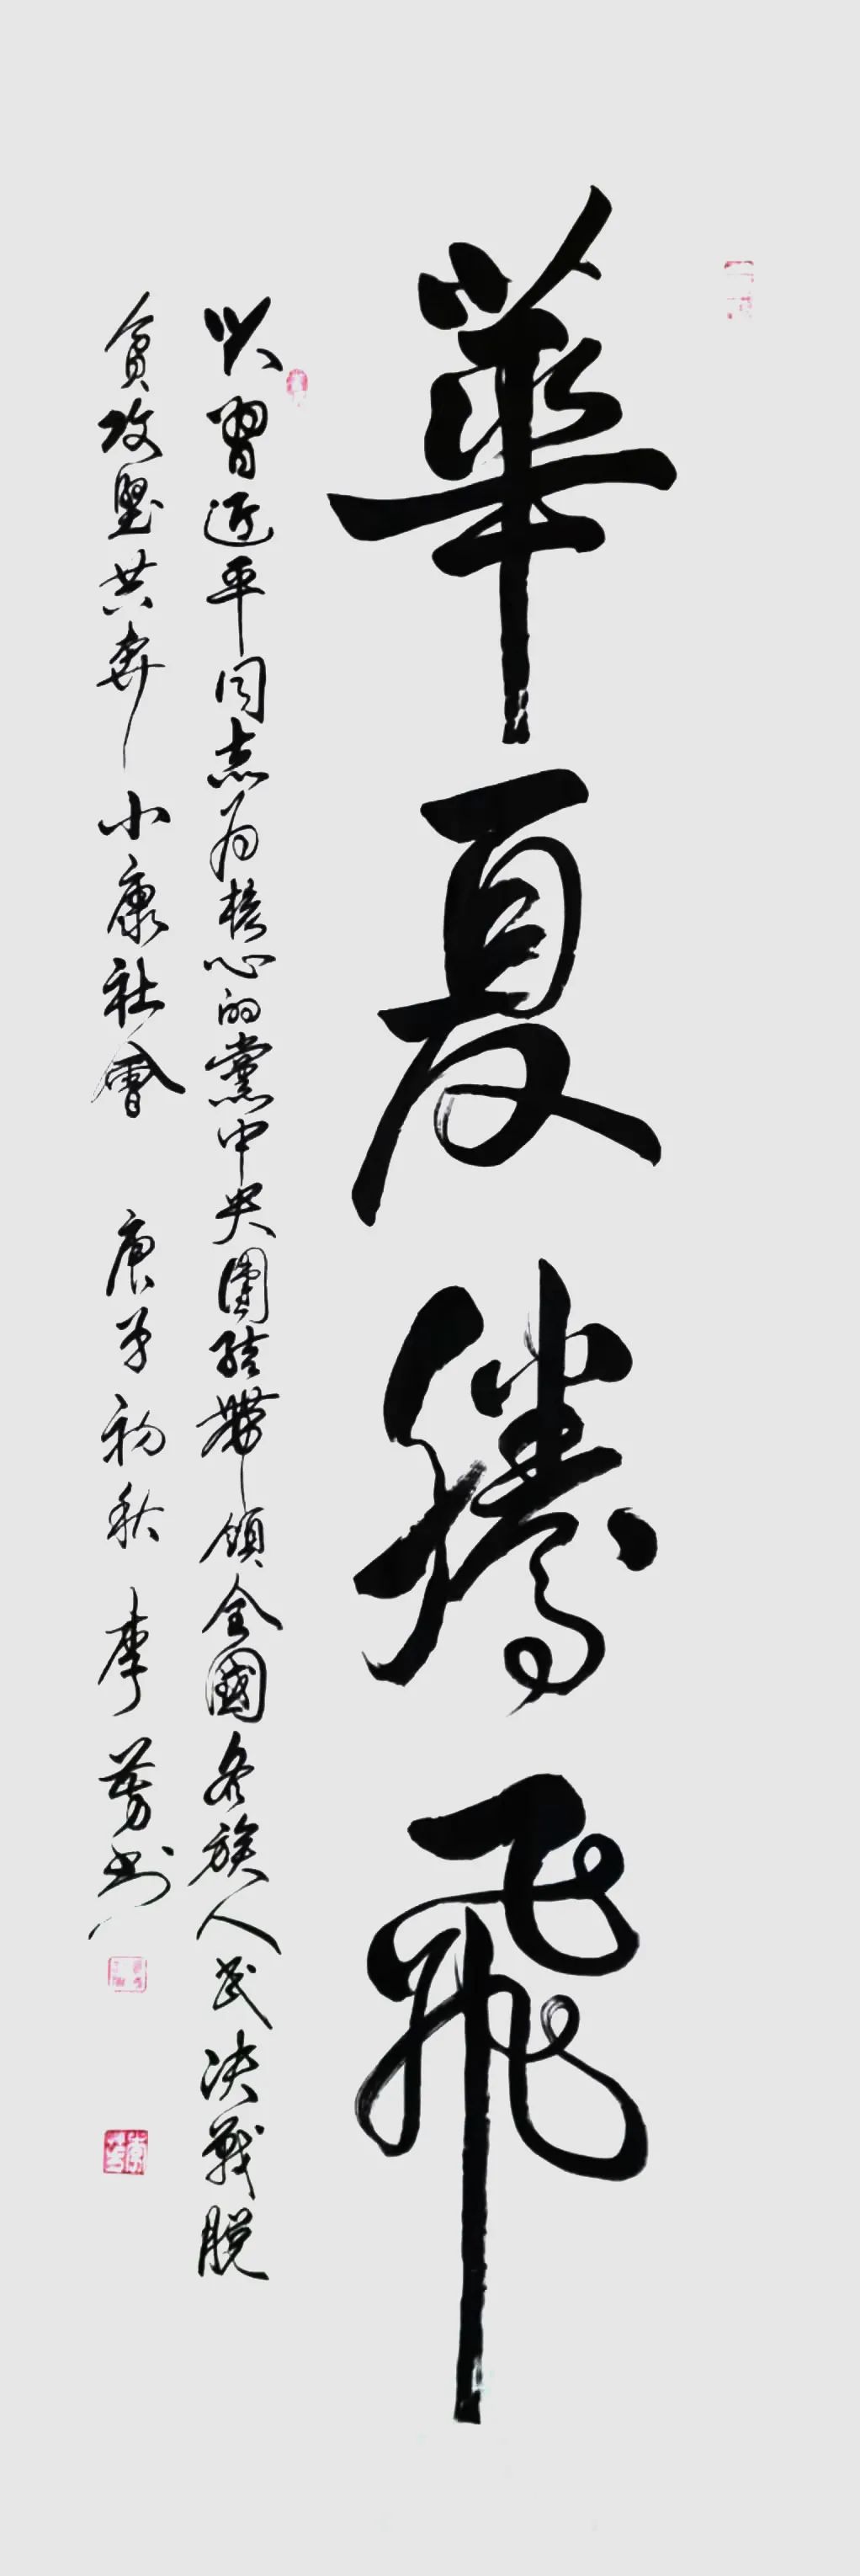 華夏騰飛
以習近平同志為核心的黨中央團結帶領全國各族人民決戰脱
貧攻堅共奔小康社會 庚子初秋 李芳书